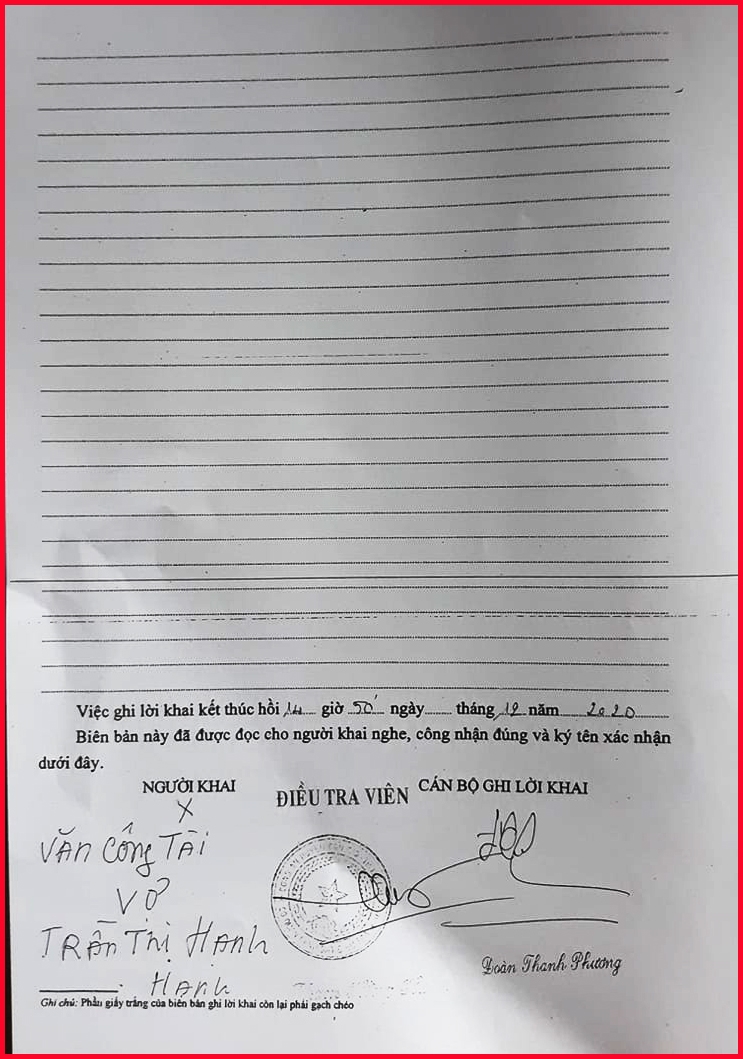 Việc ghi lời khai kết thúc hồi 14 giờ 50' ngày tháng 12 năm 2020
Biên bản này đã được đọc cho người khai nghe, công nhận đúng và ký tên xác nhận
dưới đây.
NGƯỜI KHAI ĐIỀU TRA VIÊN CÁN BỘ GHI LỜI KHAI
X
VĂN CÔNG TÀI
VỢ
TRẦN THỊ HẠNH
HẠNH
Đoàn Thanh Phương
Ghi chú: Phần giấy trắng của biên bản ghi lời khai còn lại phải gạch chéo